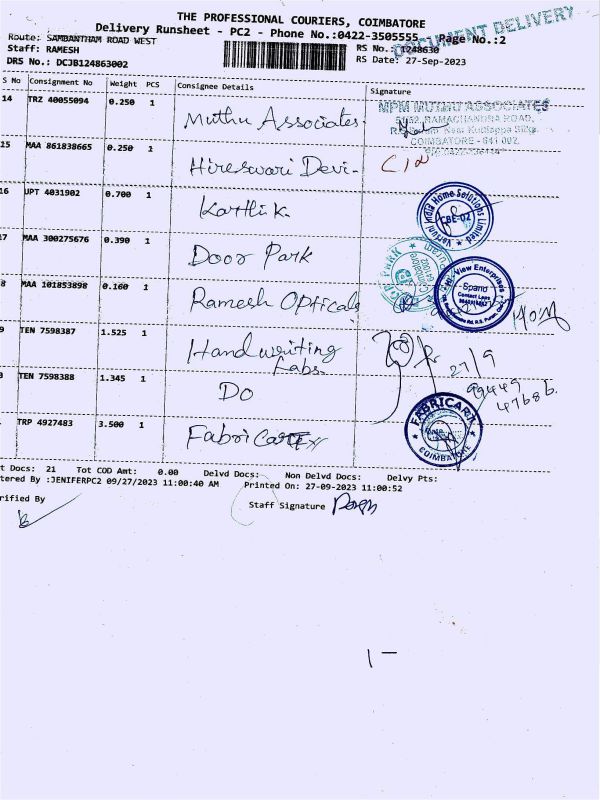 THE PROFESSIONAL COURIERS, COIMBATORE
DOCUMENT DELIVERY
Delivery Runsheet - PC2 - Phone No.:0422-3505555 Page No.:2
Route: SAMBANTHAM ROAD WEST
RS No.: 1248630
Staff: RAMESH
RS Date: 27-Sep-2023
DRS No.: DCJB124863002
S No Consignment No Weight PCS Consignee Details Signature
14 TRZ 40055094 0.250 1 Muthu Associates.
MPM MUTHU ASSOCIATES
RAMACHANDRA ROAD,
COIMBATORE - 641 002.
15 MAA 861838665 0.250 1 Hireswari Devi.
16 JPT 4031902 0.700 1 Karthik.
Vertiuni India Home Solutions Limited
CBE-02
17 MAA 300275676 0.390 1 Door Park
Coimbatore
641002
8 MAA 101853898 0.160 1 Ramesh Opticals
View Enterprises
Spand
Contact Lens
9 TEN 7598387 1.525 1 Handwriting
Labs.
27/9
TEN 7598388 1.345 1 Do
99449
47686.
TRP 4927483 3.500 1 Fabricare
FABRICARE
COIMBATORE
t Docs: 21 Tot COD Amt: 0.00 Delvd Docs: Non Delvd Docs: Delvy Pts:
tered By :JENIFERPC2 09/27/2023 11:00:40 AM Printed On: 27-09-2023 11:00:52
rified By
Staff Signature